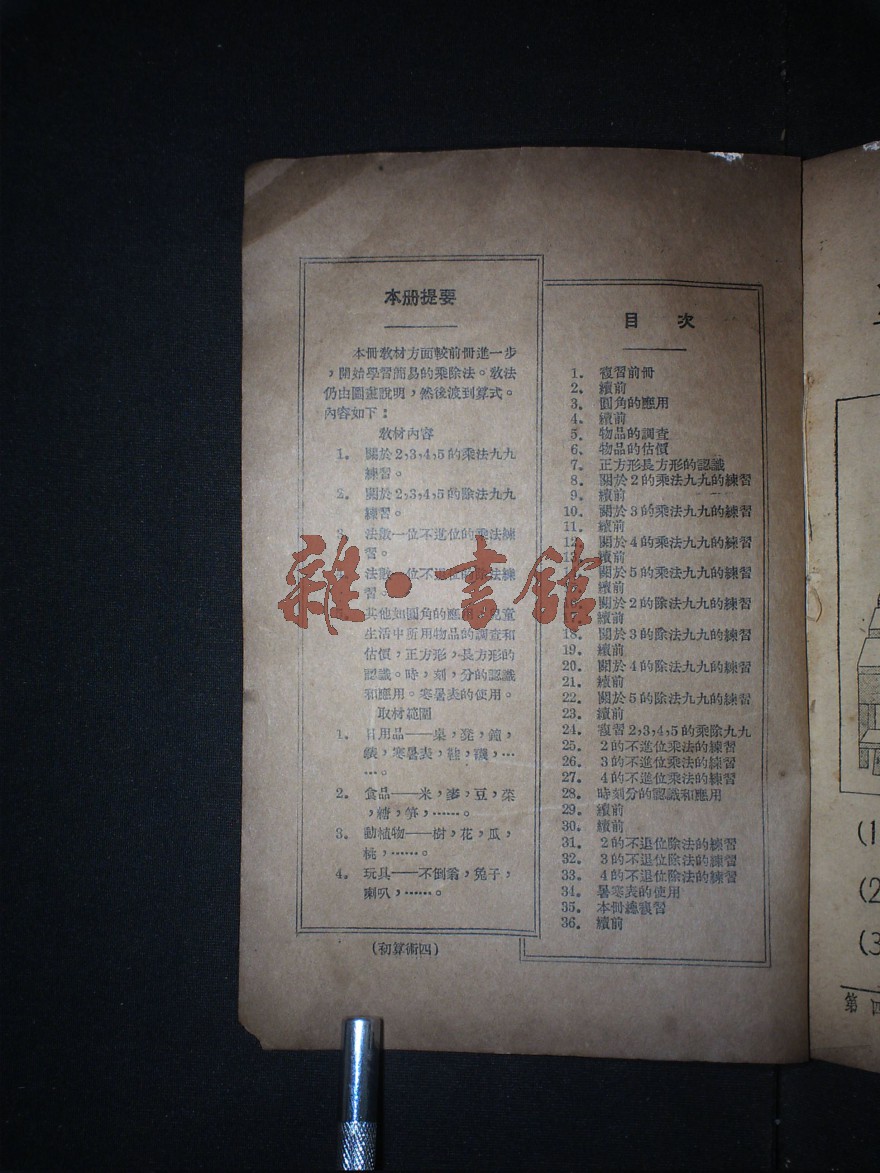 本册提要
本冊敎材方面較前冊進一步
，開始學習簡易的乘除法。敎法
仍由圖畫說明，然後渡到算式。
內容如下：
敎材內容
1. 關於2,3,4,5的乘法九九
練習。
2. 關於2,3,4,5的除法九九
練習。
3. 法數一位不進位的乘法練
習。
法數一位不退位的除法練
習。
其他如圓角的應用，兒童
生活中所用物品的調查和
估價，正方形，長方形的
認識。時，刻，分的認識
和應用。寒暑表的使用。
取材範圍
1. 日用品——桌，凳，鐘，
錶，寒暑表，鞋，襪，…
…。
2. 食品——米，麥，豆，菜
，糖，笋，……。
3. 動植物——樹，花，瓜，
桃，……。
4. 玩具——不倒翁，兔子，
喇叭，……。
(初算術四)
目 次
1. 復習前冊
2. 續前
3. 圓角的應用
4. 續前
5. 物品的調查
6. 物品的估價
7. 正方形長方形的認識
8. 關於2的乘法九九的練習
9. 續前
10. 關於3的乘法九九的練習
11. 續前
12. 關於4的乘法九九的練習
13. 續前
關於5的乘法九九的練習
續前
16. 關於2的除法九九的練習
17. 續前
18. 關於3的除法九九的練習
19. 續前
20. 關於4的除法九九的練習
21. 續前
22. 關於5的除法九九的練習
23. 續前
24. 復習2,3,4,5的乘除九九
25. 2的不進位乘法的練習
26. 3的不進位乘法的練習
27. 4的不進位乘法的練習
28. 時刻分的認識和應用
29. 續前
30. 續前
31. 2的不退位除法的練習
32. 3的不退位除法的練習
33. 4的不退位除法的練習
34. 暑寒表的使用
35. 本冊總復習
36. 續前
雜·書館
(1
(2
(3
第四